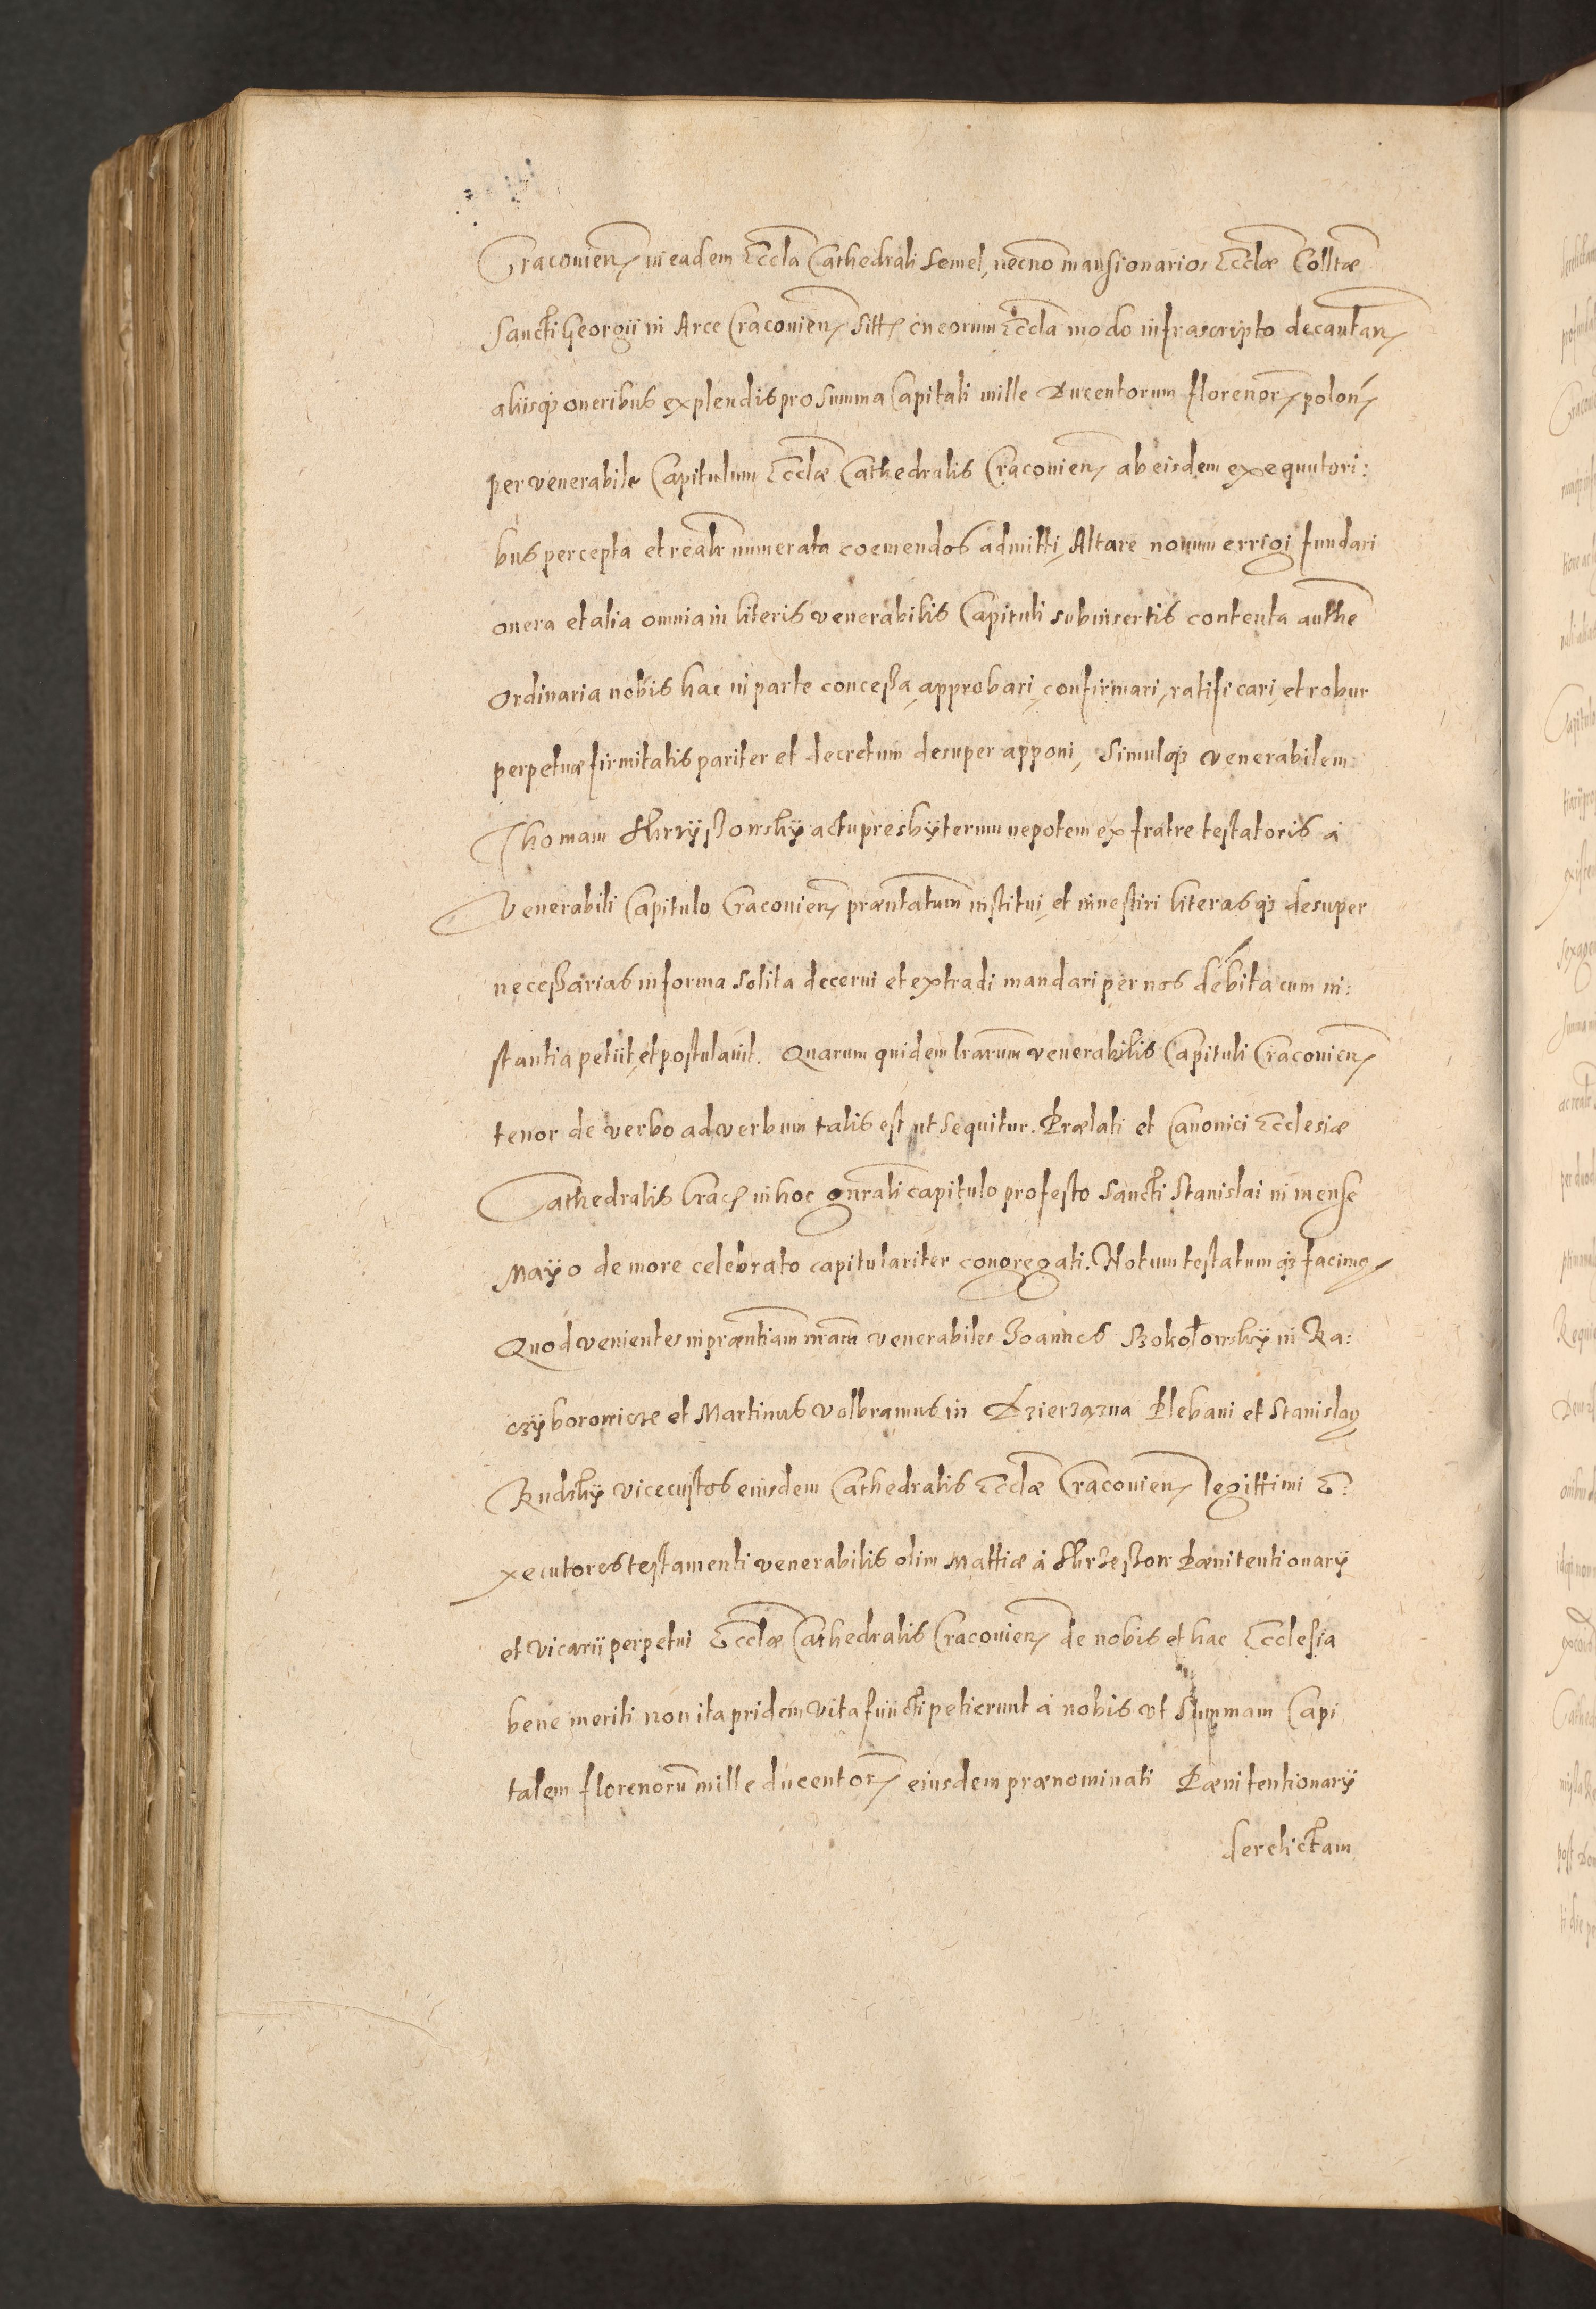 Cracouien̄ in eadem Eccl̄a Cathedrali Semel, necno mansionarios Eccl̄æ Collt̄æ
Sancti Georgii in Arce Cracouien̄ Sitt̄ in eorum Eccl̄a modo infrascripto decantan̄
aliisq3 oneribus explendis pro Summa Capitali mille Ducentorum florenor̄ polon̄
per venerabile Capitulum Eccl̄æ Cathedralis Cracouien̄ ab eisdem exequutori:
bus percepta et realr̄ numerata coemendos admitti, Altare nouum errigi fundari
onera et alia omnia in literis venerabilis Capituli subinsertis contenta auth̄e
Ordinaria nobis hac in parte concessa, approbari, confirmari, ratificari, et robur
perpetuæ firmitatis pariter et decretum desuper apponi, Simulq3 venerabilem
Thomam Skrzyszowsky actu presbyterum nepotem ex fratre testatoris à
Venerabili Capitulo Cracouien̄ præntatum̄ institui, et inuestiri literasq3 desuper
necessarias in forma Solita decerni et extradi mandari per nos débita cum in:
stantia petiit, et postulauit. Quarum quidem lr̄arum venerabilis Capituli Cracouien̄
tenor de verbo ad verbum talis est ut Sequitur. Prælati et Canonici Ecclesiæ
Cathedralis Crac̄ in hoc gnrāli capitulo pro festo Sancti Stanislai in mense
Mayo de more celebrato capitulariter congregati. Notum testatumq3 facimq
Quod venientes in præntiam nr̄am venerabiles Joannes Sokołowsky in Ra:
czyborowice et Martinus Volbramus in Dzierzązna Plebani et Stanislaq
Rudsky vicecustos eiusdem Cathedralis Eccl̄æ Cracouien̄ legittimi E:
xecutores testamenti venerabilis olim Mattiæ à Skrzeszow Pænitentionarÿ
et Vicarii perpetui Eccl̄æ Cathedralis Cracouien̄ de nobis et hac Ecclesia
bene meriti non ita pridem vita functi petierunt à nobis vt Summam Capi
talem florenorū mille ducentor̄ eiusdem prænominati Pænitentionarÿ